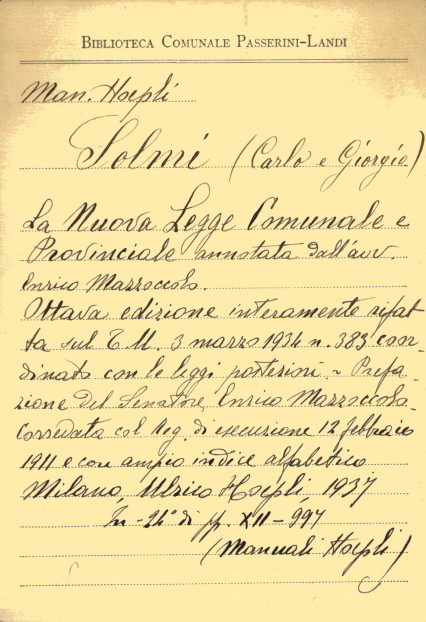 BIBLIOTECA COMUNALE PASSERINI-LANDI
Man. Hoepli
Solmi (Carlo e Giorgio)
La Nuova Legge Comunale e
Provinciale annotata dall'avv
Enrico Mazzoccolo.
Ottava edizione interamente rifat-
ta sul T. U. 3 marzo 1934 n. 383 coor-
dinato con le leggi posteriori - Prefa-
zione del Senatore Enrico Mazzoccolo.
Corredata col Reg. di esecuzione 12 febbraio
1911 e con ampio indice alfabetico
Milano, Ulrico Hoepli, 1937
In-24° di pp. XII-997
(Manuali Hoepli)